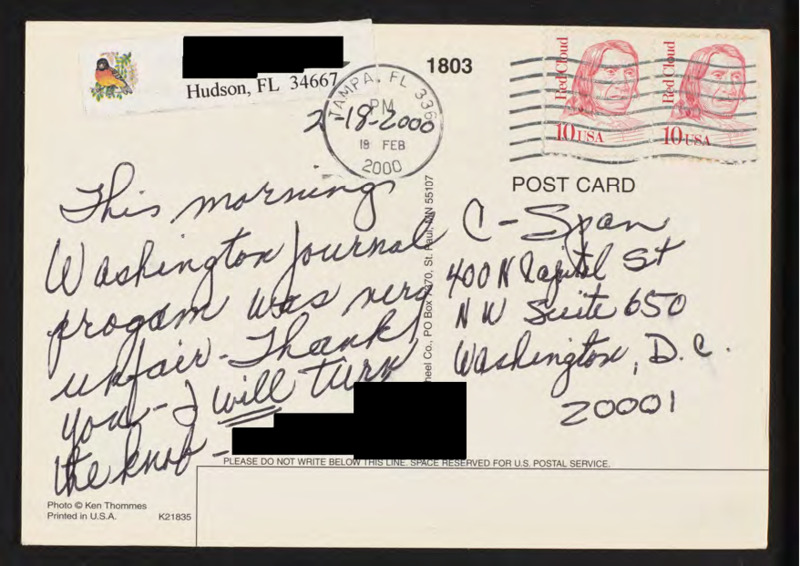 Hudson, FL 34667
1803
TAMPA, FL 336
PM
18 FEB
2000
2-18-2000
Red Cloud
10 USA
Red Cloud
10 USA
POST CARD
This morning
Washington Journal
progam was very
unfair - Thank
you - I will turn
the knob -
heel Co., PO Box 7170, St. Paul, MN 55107
C-Span
400 N Capital St
NW Suite 650
Washington, D.C.
20001
PLEASE DO NOT WRITE BELOW THIS LINE. SPACE RESERVED FOR U.S. POSTAL SERVICE.
Photo © Ken Thommes
Printed in U.S.A. K21835